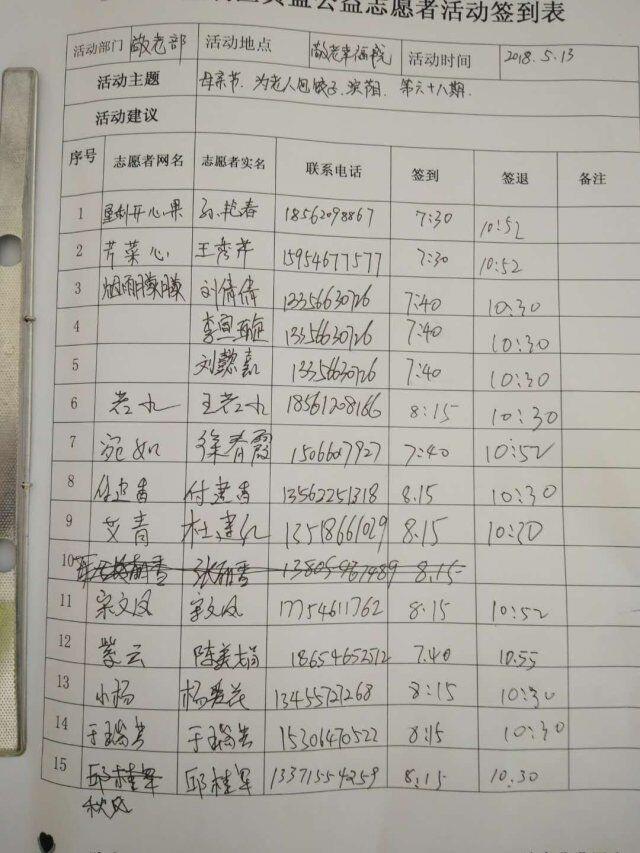 公益志愿者活动签到表
活动部门 敬老部 活动地点 敬老幸福院 活动时间 2018.5.13
活动主题 母亲节.为老人包饺子,演节.第六十八期.
活动建议
序号 志愿者网名 志愿者实名 联系电话 签到 签退 备注
1 开心果 孙艳春 18562098867 7:30 10:52
2 芹菜心 王秀芹 15954677577 7:30 10:52
3 烟雨朦朦 刘倩倩 13356630726 7:40 10:30
4 李宣 13356630726 7:40 10:30
5 刘懿嘉 13356630726 7:40 10:30
6 老水 王老水 18561208166 8:15 10:30
7 宛如 徐春霞 1506607927 7:40 10:52
8 付建香 付建香 13562251318 8.15 10:30
9 艾青 杜建红 13518661029 8.15 10:30
10 张丽香 8.15
11 宋文凤 宋文凤 17754611762 8:15 10:52
12 紫云 陈美娟 18654652512 7.40 10.55
13 小杨 杨爱花 13455727268 8:15 10:30
14 于瑞芳 于瑞芳 15306470522 8:15 10:30
15 邱桂军 邱桂军 13371554259 8:15 10.30
秋风